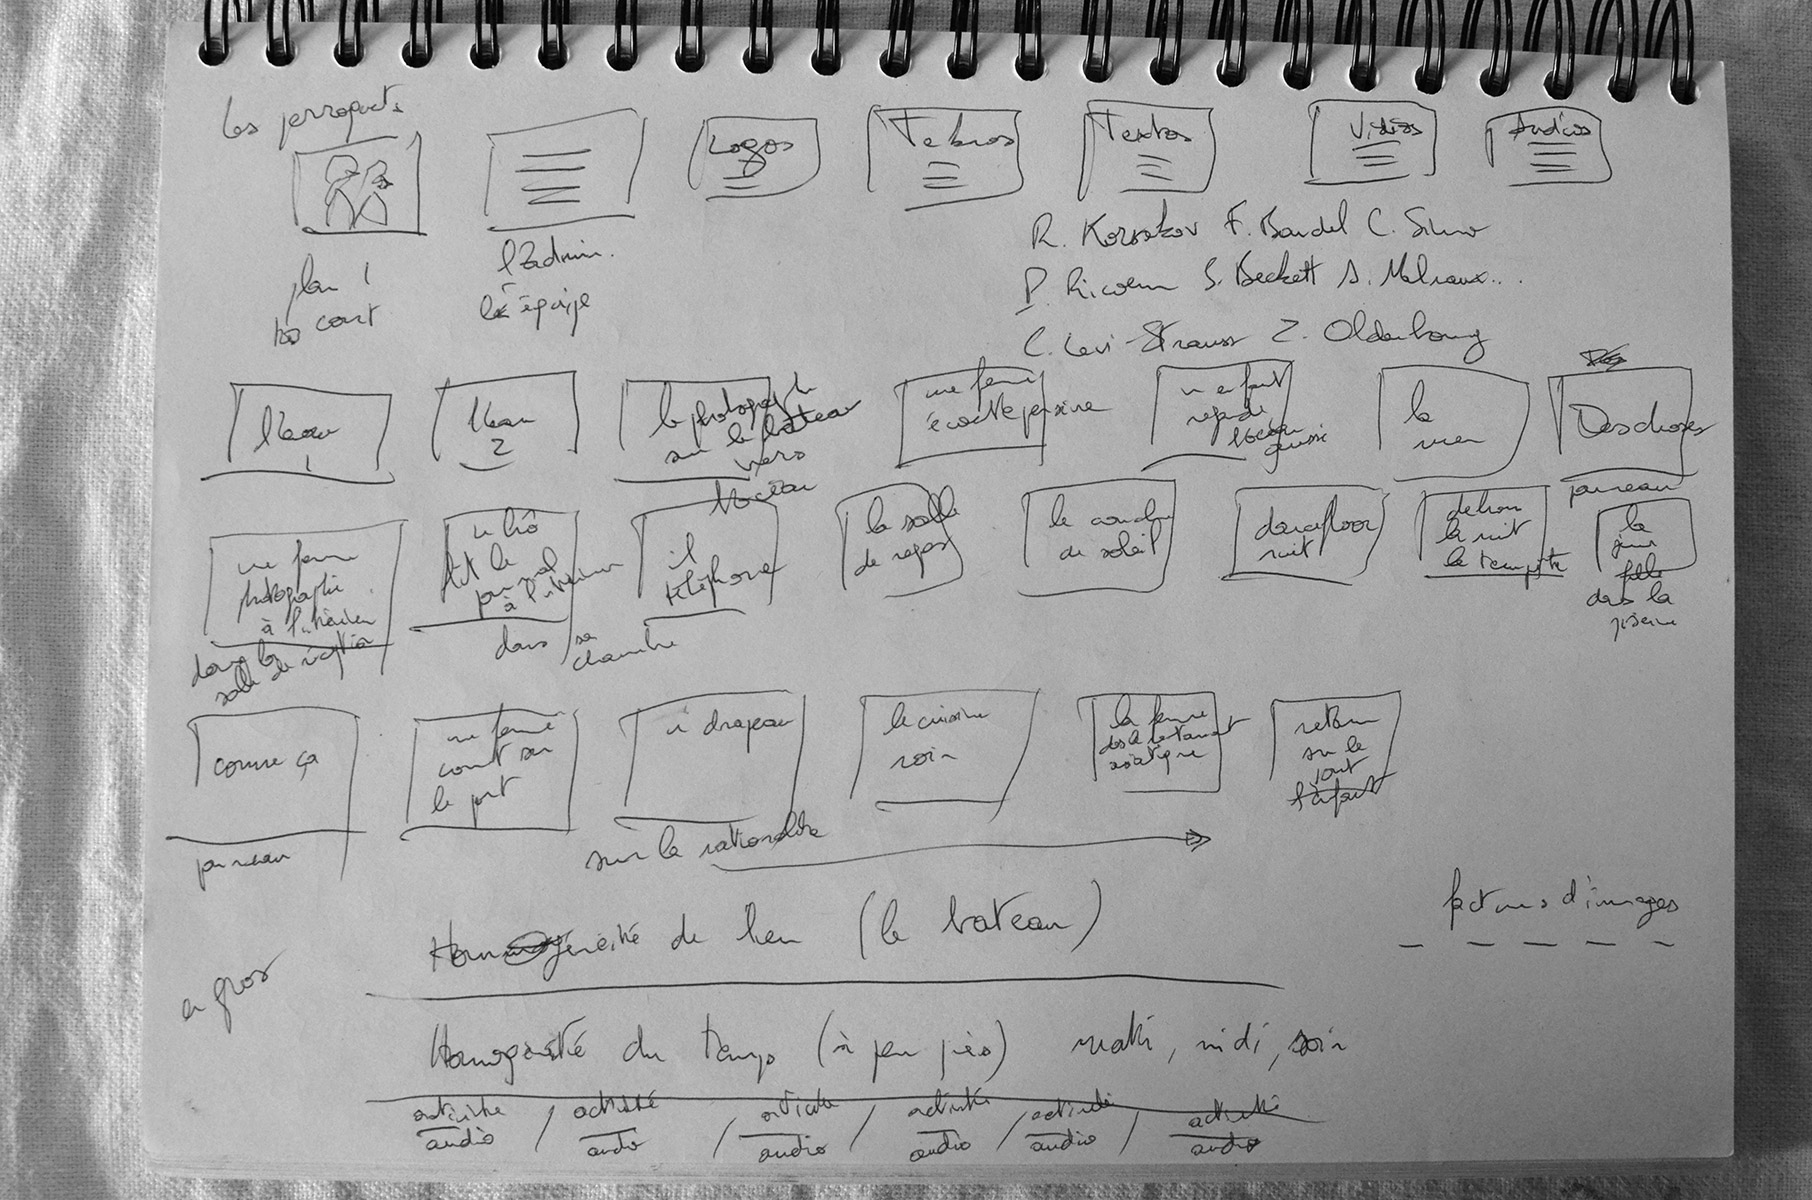 Les perroquets
Logos
Textos
Vidéos
Audios
plan 1
court
l'équipe
R. Korsakov F. Baudel C. Simo
P. Ricoeur S. Beckett A. Malraux...
C. Levi-Strauss Z. Oldenbourg
l'eau
1
l'eau
2
le photographe
sur le bateau
vers
l'océan
une femme
écoute pensive
regarde
l'océan
aussi
la
mer
Des choses
panneau
une femme
photographie
à l'intérieur
dans la
salle de réception
lit le
journal
à l'intérieur
il
téléphone
dans sa
chambre
la salle
de repas
le coucher
du soleil
dancefloor
nuit
dehors
la nuit
la tempête
la
jeune
fille
dans la
piscine
comme ça
panneau
une femme
court sur
le pont
un drapeau
la cuisine
soir
la femme
asiatique
retour
sur le
pont
sur la rationalité
factures d'images
Homogénéité de lieu (le bateau)
en gros
Homogénéité du temps (à peu près) matin, midi, soir
activité / activité / activité / activité / activité / activité
audio audio audio audio audio audio